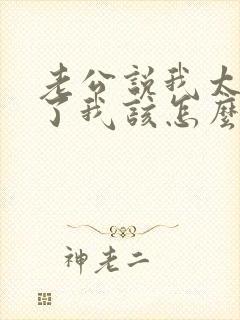 老公說我太
了我該怎麼
神老二